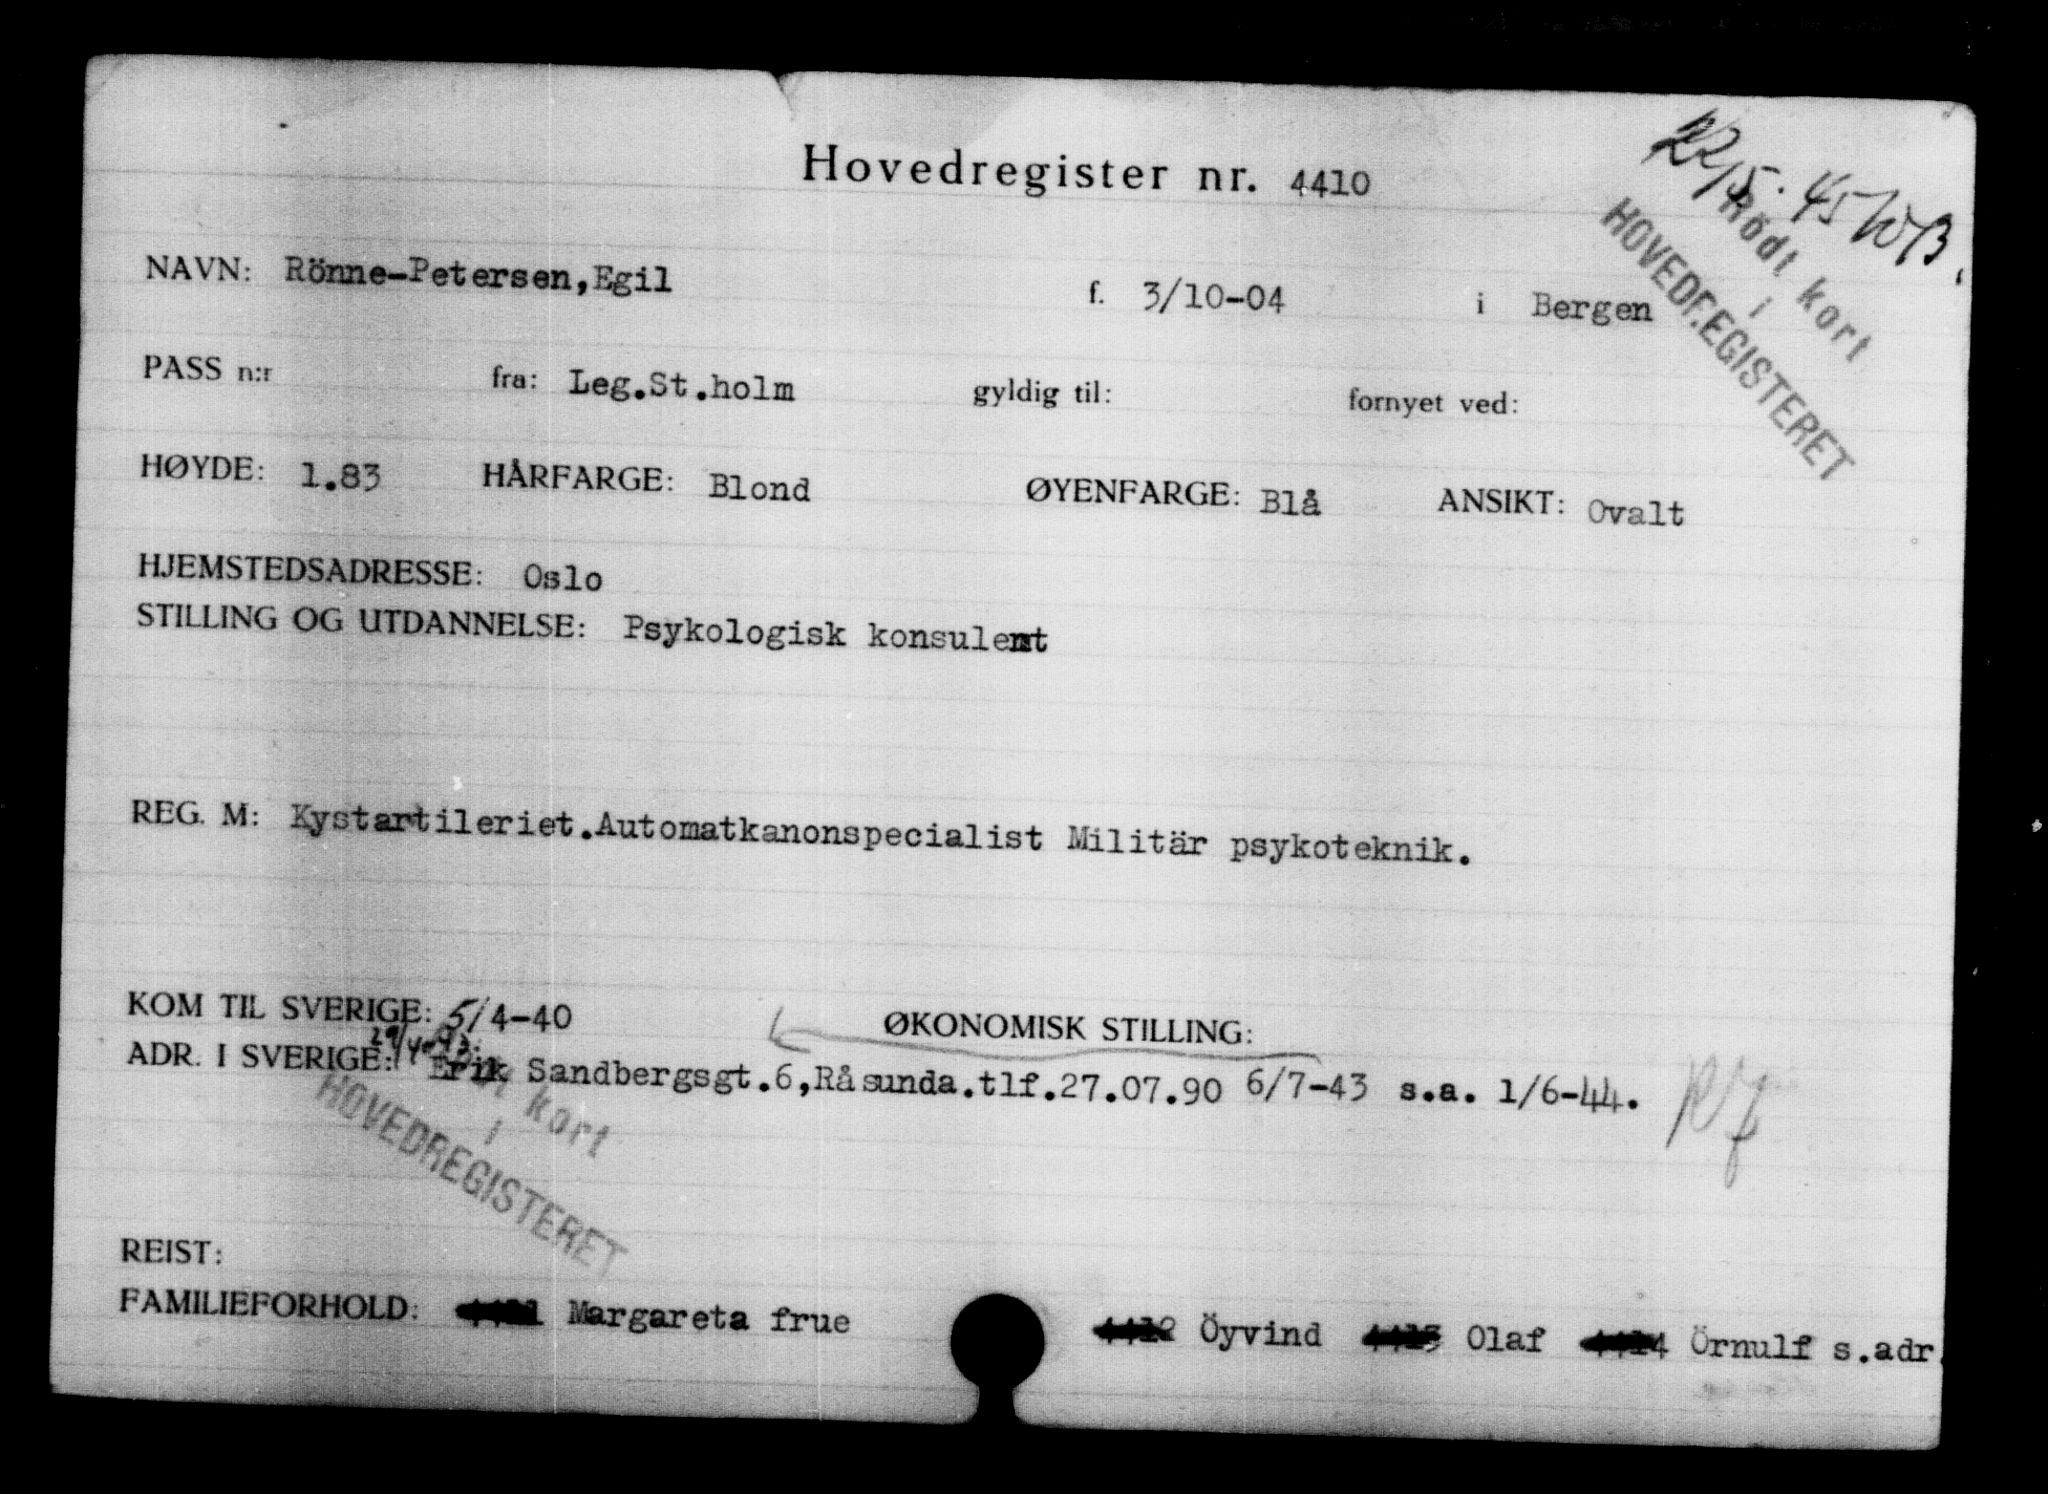 Hovedregister nr. 4410
22/5. 45
Rödt kort
i
HOVEDREGISTERET
NAVN: Rönne-Petersen,Egil f. 3/10-04 i Bergen
PASS n:r fra: Leg.St.holm gyldig til: fornyet ved:
HØYDE: 1.83 HÅRFARGE: Blond ØYENFARGE: Blå ANSIKT: Ovalt
HJEMSTEDSADRESSE: Oslo
STILLING OG UTDANNELSE: Psykologisk konsulent
REG. M: Kystartileriet.Automatkanonspecialist Militär psykoteknik.
KOM TIL SVERIGE: 5/4-40 ØKONOMISK STILLING:
ADR. I SVERIGE: Erik Sandbergsgt.6,Råsunda.tlf.27.07.90 6/7-43 s.a. 1/6-44.
kort
i
HOVEDREGISTERET
REIST:
FAMILIEFORHOLD: 4411 Margareta frue 4412 Öyvind 4413 Olaf 4414 Örnulf s.adr.